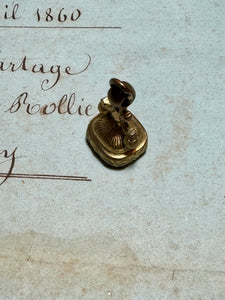 il 1860
artage
Rollie
y